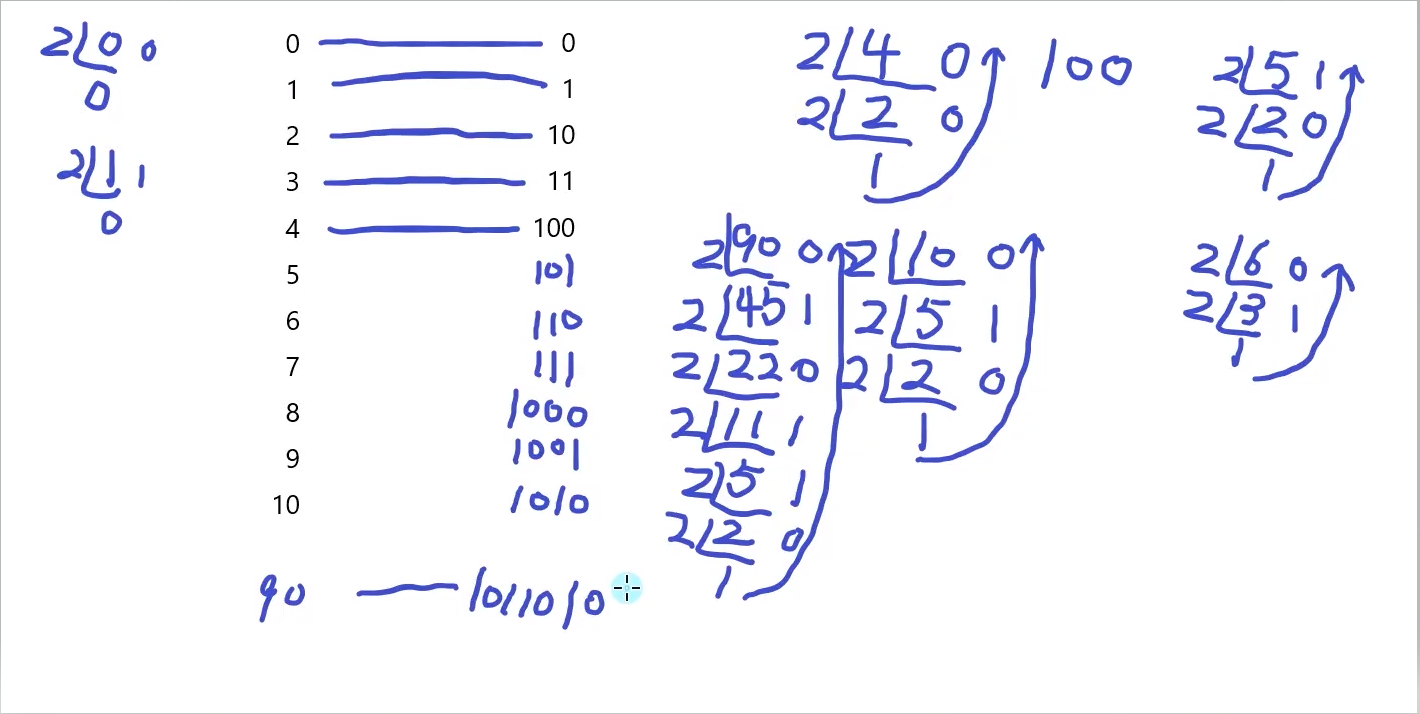 2 0 0
0
2 1 1
0
0 0
1 1
2 10
3 11
4 100
5 101
6 110
7 111
8 1000
9 1001
10 1010
90 1011010
2 4 0 100
2 2 0
1
2 5 1
2 2 0
1
2 90 0
2 45 1
2 22 0
2 11 1
2 5 1
2 2 0
1
2 10 0
2 5 1
2 2 0
1
2 6 0
2 3 1
1